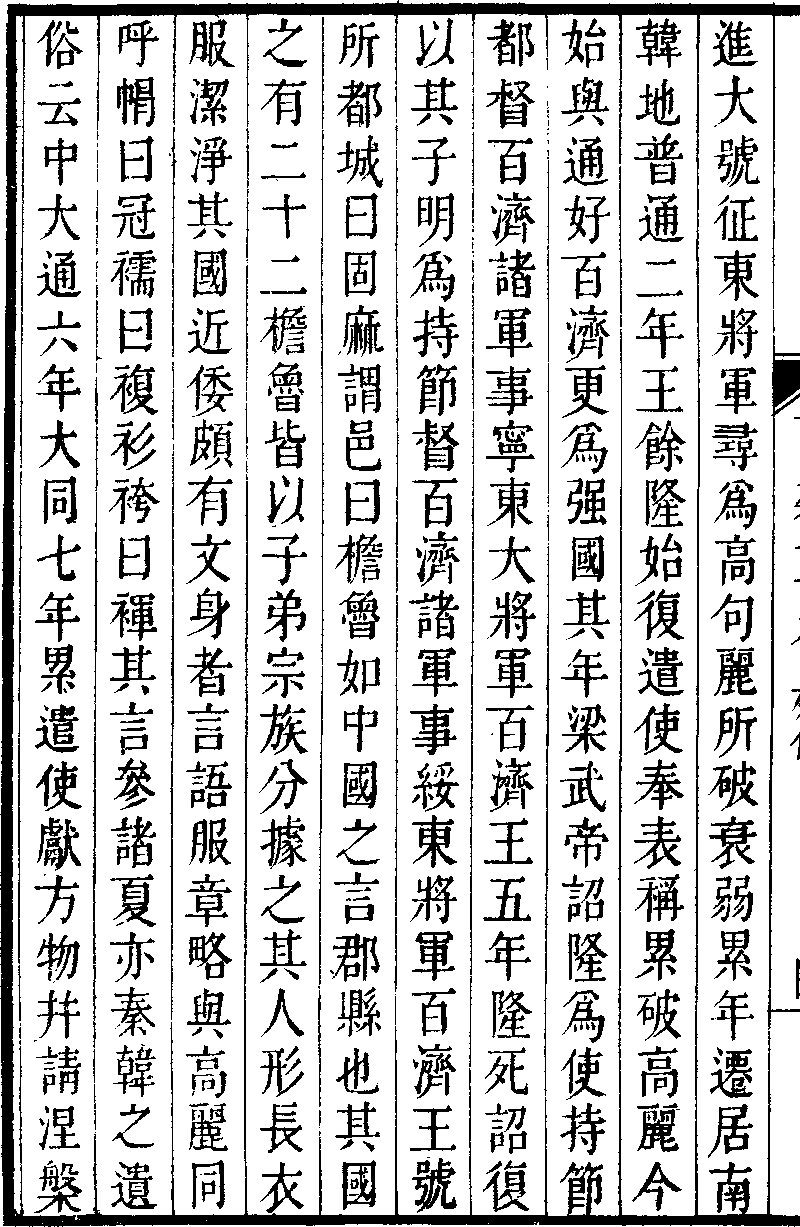 進大號征東將軍尋爲高句麗所破衰弱累年遷居南
韓地普通二年王餘隆始復遣使奉表稱累破高麗今
始與通好百濟更爲强國其年梁武帝詔隆爲使持節
都督百濟諸軍事寧東大將軍百濟王五年隆死詔復
以其子明爲持節督百濟諸軍事綏東將軍百濟王號
所都城曰固麻謂邑曰檐魯如中國之言郡縣也其國
之有二十二檐魯皆以子弟宗族分據之其人形長衣
服潔淨其國近倭頗有文身者言語服章略與高麗同
呼帽曰冠襦曰複衫袴曰褌其言參諸夏亦秦韓之遺
俗云中大通六年大同七年累遣使獻方物幷請涅槃